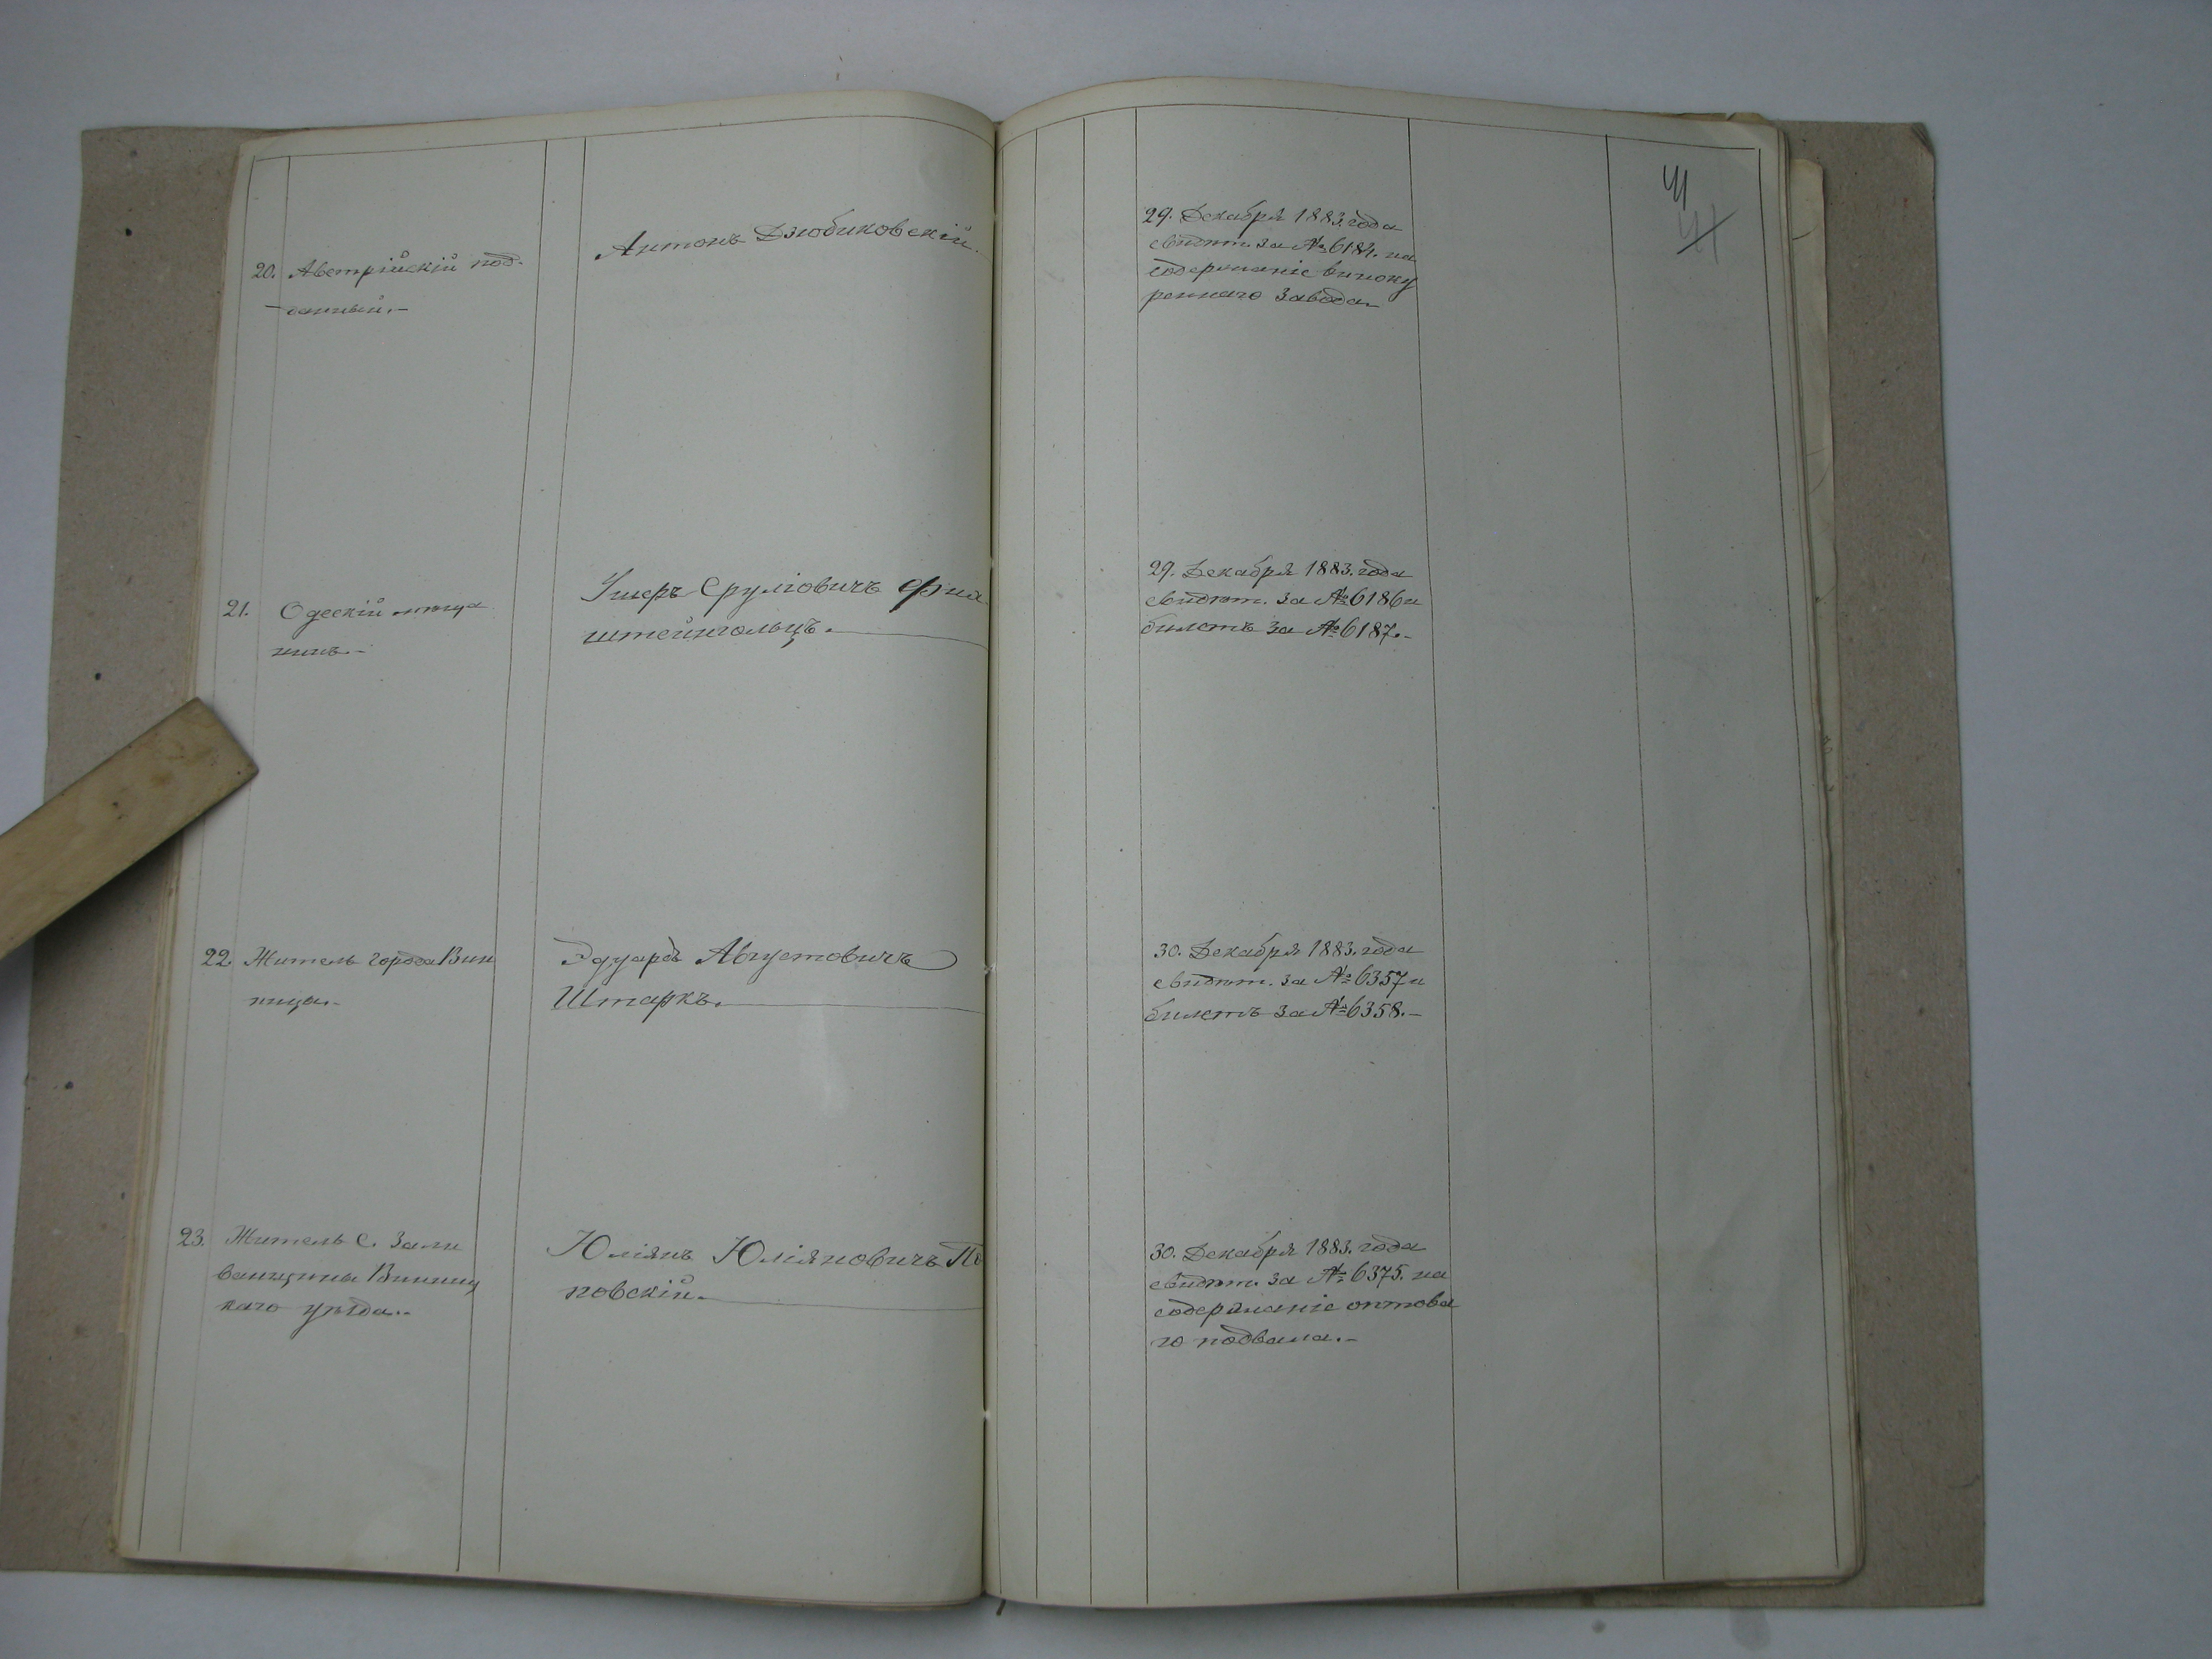 41
41
20. Австрійскій под-
данный.-
Антонъ Дзюбиковскій.
29. Декабря 1883. года
свидѣт. за № 6184. на
содержаніе виноку
реннаго завода
21. Одескій мѣща
нинъ.-
Ушеръ Сруліовичъ Фин
штейнгольцъ.
29. Декабря 1883. года
свидѣт. за № 6186 и
билетъ за № 6187.-
22. Житель города Вин
ница.-
Эдуардъ Августовичъ
Штаркъ.
30. Декабря 1883. года
свидѣт. за № 6357 и
билетъ за № 6358.-
23. Житель с. Зали
ванщины Винниц
каго уѣзда.-
Юліянъ Юліяновичъ
новскій.
30. Декабря 1883. года
свидѣт. за № 6375. на
содержаніе оптова
го подвала.-